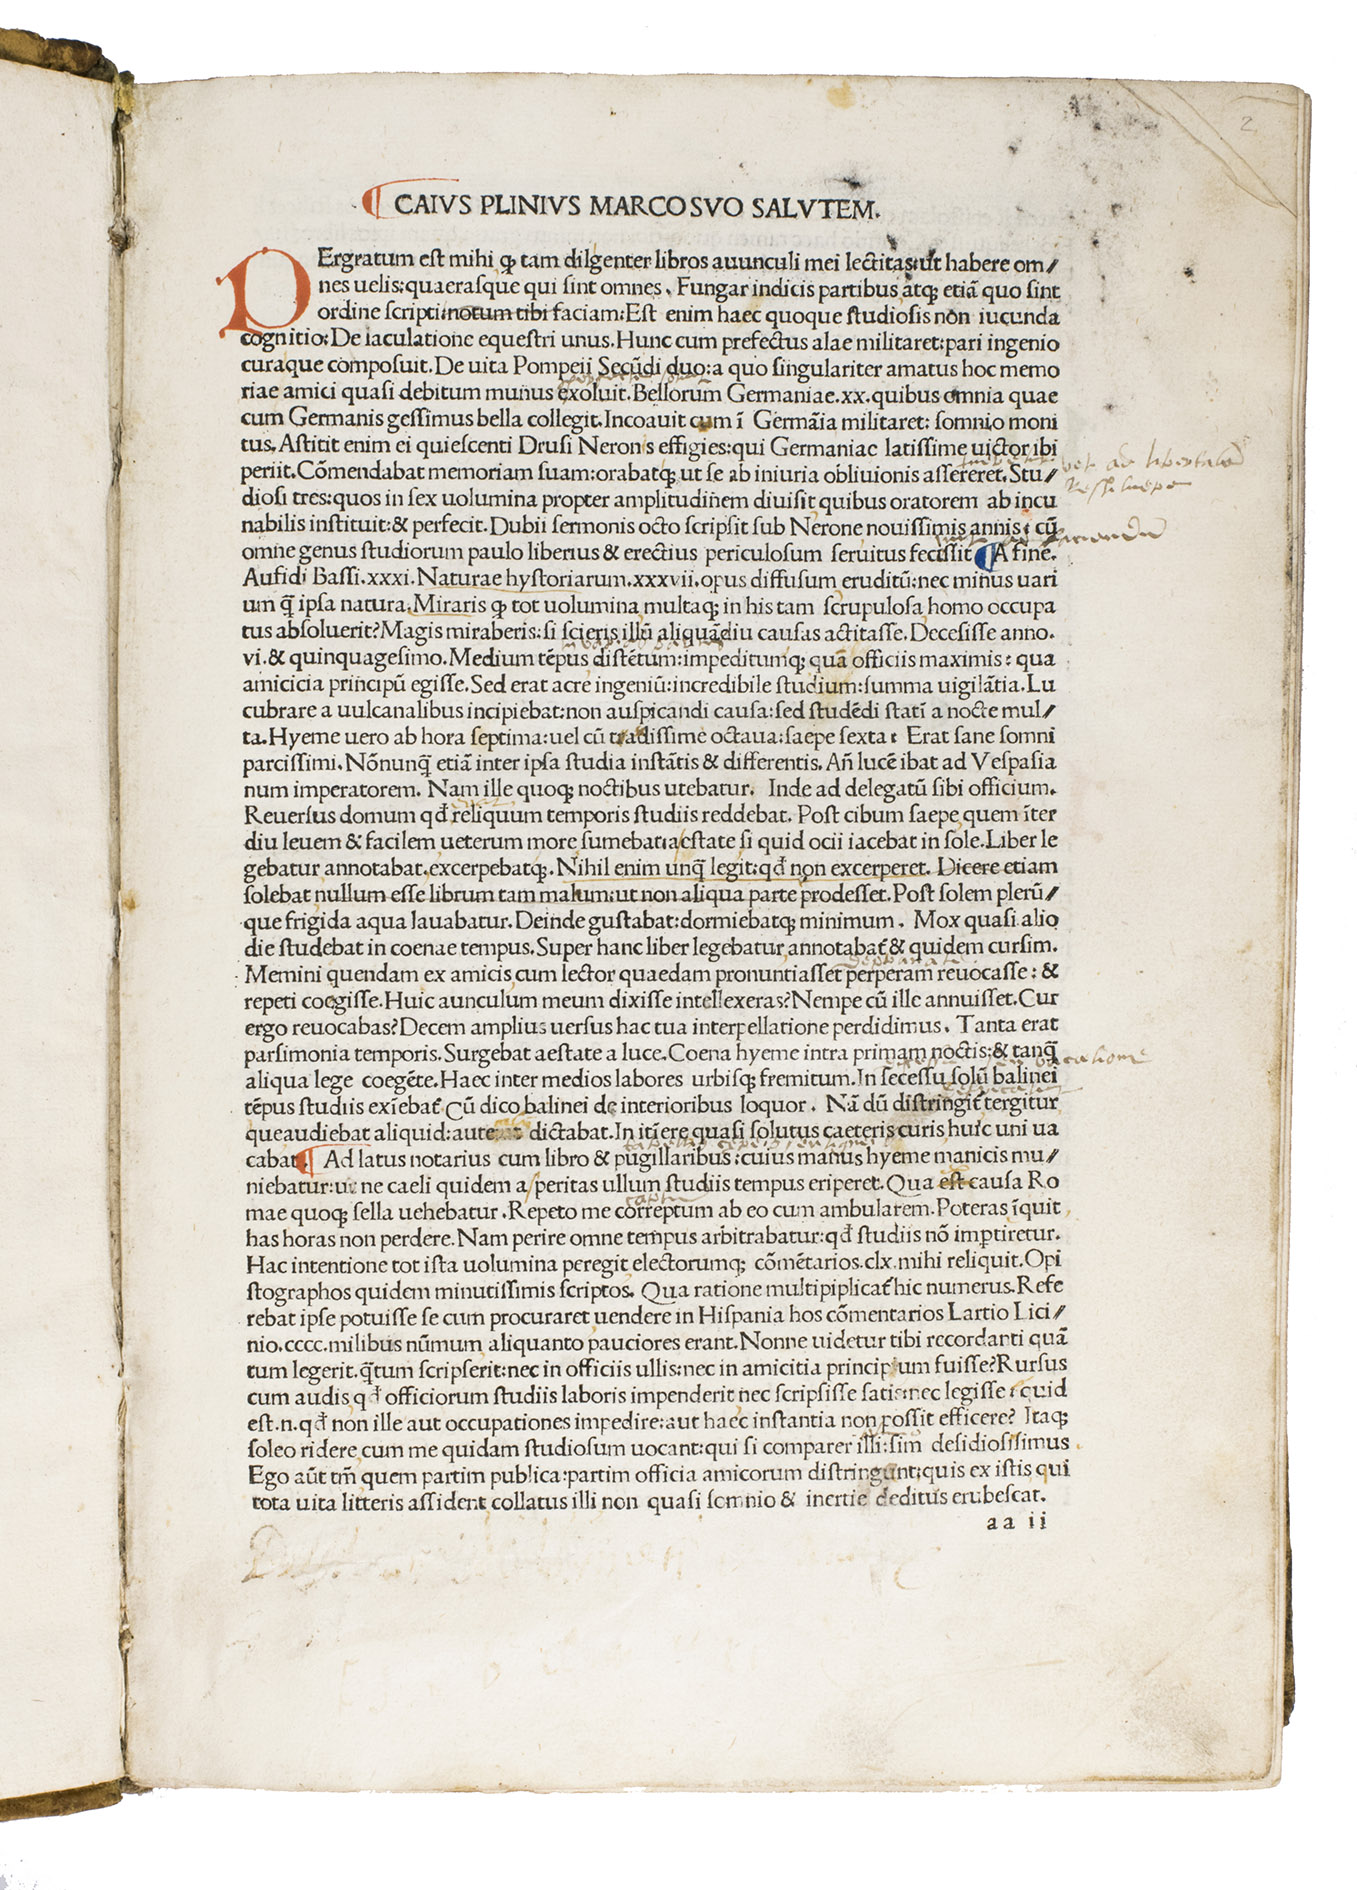 2
CAIVS PLINIVS MARCO SVO SALVTEM.
PErgratum est mihi ꝙ tam dilgenter libros auunculi mei lectitas:ut habere om⸗
nes uelis:quaerasque qui sint omnes. Fungar indicis partibus atqꝫ etiã quo sint
ordine scripti:notum tibi faciam:Est enim haec quoque studiosis non iucunda
cognitio:De iaculatione equestri unus.Hunc cum prefectus alae militaret:pari ingenio
curaque composuit.De uita Pompeii Secũdi duo:a quo singulariter amatus hoc memo
riae amici quasi debitum munus exoluit.Bellorum Germaniae.xx.quibus omnia quae
cum Germanis gessimus bella collegit.Incoauit cum ĩ Germãia militaret: somnio moni
tus.Astitit enim ei quiescenti Drusi Neronis effigies:qui Germaniae latissime uictor ibi
periit.Cõmendabat memoriam suam:orabatqꝫ ut se ab iniuria obliuionis assereret.Stu⸗
diosi tres:quos in sex uolumina propter amplitudinem diuisit quibus oratorem ab incu
nabilis instituit:& perfecit.Dubii sermonis octo scripsit sub Nerone nouissimis annis: cũ
omne genus studiorum paulo liberius & erectius periculosum seruitus fecissit A fine.
Aufidi Bassi.xxxi.Naturae hystoriarum.xxxvii.opus diffusum eruditũ:nec minus uari
um q̃ ipsa natura.Miraris ꝙ tot uolumina multaqꝫ in his tam scrupulosa homo occupa
tus absoluerit?Magis miraberis:si scieris illũ aliquãdiu causas actitasse.Decesisse anno.
vi.& quinquagesimo.Medium tẽpus distẽtum:impeditumqꝫ quã officiis maximis: qua
amicicia principũ egisse.Sed erat acre ingeniũ:incredibile studium:summa uigilãtia.Lu
cubrare a uulcanalibus incipiebat:non auspicandi causa:sed studẽdi statĩ a nocte mul⸗
ta.Hyeme uero ab hora septima:uel cũ tradissime octaua:saepe sexta: Erat sane somni
parcissimi.Nõnunq̃ etiã inter ipsa studia instãtis & differentis.Añ lucẽ ibat ad Vespasia
num imperatorem. Nam ille quoqꝫ noctibus utebatur. Inde ad delegatũ sibi officium.
Reuersus domum qđ reliquum temporis studiis reddebat.Post cibum saepe quem ĩter
diu leuem & facilem ueterum more sumebat:aestate si quid ocii iacebat in sole.Liber le
gebatur annotabat.excerpebatqꝫ.Nihil enim unq̃ legit:qđ non excerperet. Dicere etiam
solebat nullum esse librum tam malum:ut non aliqua parte prodesset.Post solem plerũ⸗
que frigida aqua lauabatur.Deinde gustabat:dormiebatqꝫ minimum. Mox quasi alio
die studebat in coenae tempus.Super hanc liber legebatur annotabat̃ & quidem cursim.
Memini quendam ex amicis cum lector quaedam pronuntiasset perperam reuocasse: &
repeti coegisse.Huic aunculum meum dixisse intellexeras?Nempe cũ ille annuisset.Cur
ergo reuocabas?Decem amplius uersus hac tua interpellatione perdidimus. Tanta erat
parsimonia temporis.Surgebat aestate a luce.Coena hyeme intra primam noctis:& tanq̃
aliqua lege coegẽte.Haec inter medios labores urbisqꝫ fremitum.In secessu solũ balinei
tẽpus studiis exĩebat̃ Cũ dico balinei de interioribus loquor. Nã dũ distringit̃ tergitur
queaudiebat aliquid:aut dictabat.In itĩere quasi solutus caeteris curis huic uni ua
cabat. Ad latus notarius cum libro & pugillaribus:cuius manus hyeme manicis mu⸗
niebatur:ut ne caeli quidem asperitas ullum studiis tempus eriperet.Qua est causa Ro
mae quoqꝫ sella uehebatur.Repeto me correptum ab eo cum ambularem.Poteras ĩquit
has horas non perdere.Nam perire omne tempus arbitrabatur:qđ studiis nõ imꝑtiretur.
Hac intentione tot ista uolumina peregit electorumqꝫ cõmẽtarios.clx.mihi reliquit.Opi
stographos quidem minutissimis scriptos. Qua ratione multipiplicat̃ hic numerus.Refe
rebat ipse potuisse se cum procuraret uendere in Hispania hos cõmentarios Lartio Lici⸗
nio.cccc.milibus nũmum aliquanto pauciores erant.Nonne uidetur tibi recordanti quã
tum legerit.q̃tum scripserit:nec in officiis ullis:nec in amicitia principium fuisse?Rursus
cum audis qđ officiorum studiis laboris impenderit nec scripsisse satis:nec legisse: quid
est.n.qđ non ille aut occupationes impedire:aut haec instantia non possit efficere? Itaqꝫ
soleo ridere cum me quidam studiosum uocant:qui si comparer illi:sim desidiosissimus
Ego aũt tm̃ quem partim publica:partim officia amicorum distringunt:quis ex istis qui
tota uita litteris assident collatus illi non quasi somnio & inertie deditus erubescat.
aa ii